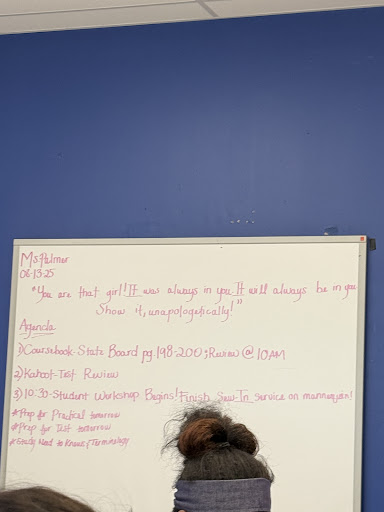 Ms Palmer
06-13-25
"You are that girl! It was always in you It will always be in you
Show it, unapologetically!"
Agenda
1) Coursebook-State Board pg. 198-200; Review @ 10AM
2) Kahoot-Test Review
3) 10:30-Student Workshop Begins! Finish Sew-In Service on mannequin!
*Prep for Practical tomorrow
*Prep for Test tomorrow
*Study Need to Knows/Terminology